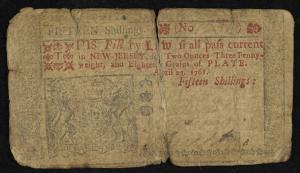 FIFTEEN Shillings. No.
THIS Bill by LAW shall pass current
in NEW-JERSEY, for Two Ounces Three Penny-
weight, and Eighteen Grains of PLATE.
April 23, 1761.
Fifteen Shillings: